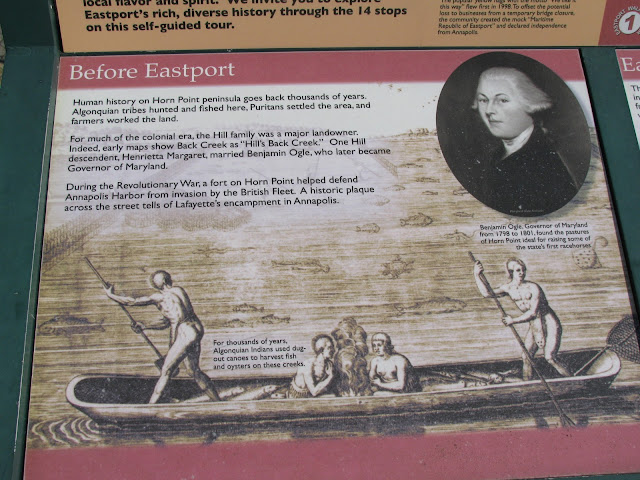 local flavor and spirit. We invite you to explore
Eastport's rich, diverse history through the 14 stops
on this self-guided tour.
this way" flew first in 1998. To offset the potential
loss to businesses from a temporary bridge closure,
the community created the mock "Maritime
Republic of Eastport" and declared independence
from Annapolis.
Before Eastport
Human history on Horn Point peninsula goes back thousands of years.
Algonquian tribes hunted and fished here, Puritans settled the area, and
farmers worked the land.
For much of the colonial era, the Hill family was a major landowner.
Indeed, early maps show Back Creek as "Hill's Back Creek." One Hill
descendent, Henrietta Margaret, married Benjamin Ogle, who later became
Governor of Maryland.
During the Revolutionary War, a fort on Horn Point helped defend
Annapolis Harbor from invasion by the British Fleet. A historic plaque
across the street tells of Lafayette's encampment in Annapolis.
Benjamin Ogle, Governor of Maryland
from 1798 to 1801, found the pastures
of Horn Point ideal for raising some of
the state's first racehorses.
For thousands of years,
Algonquian Indians used dug-
out canoes to harvest fish
and oysters on these creeks.